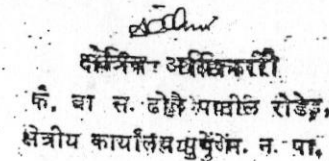 क्षेत्रिय अधिकारी
कै. बा स. ढोले पाटील रोड
क्षेत्रीय कार्यालय पुणे म. न. पा.